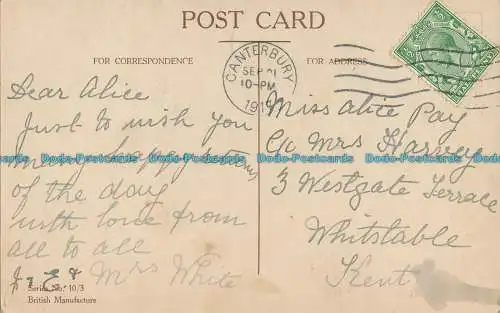 POST CARD
FOR CORRESPONDENCE
FOR ADDRESS
CANTERBURY
SEP 21
10-PM
191
Dear Alice
Just to wish you
many happy returns
of the day
with love from
all to all
Mrs White
Miss Alice Pay
C/o Mrs Harvey
3 Westgate Terrace
Whitstable
Kent
Series No. 10/3
British Manufacture
Dodo-Postcards Dodo-Postcards Dodo-Postcards Dodo-Postcards Dodo-Postcards